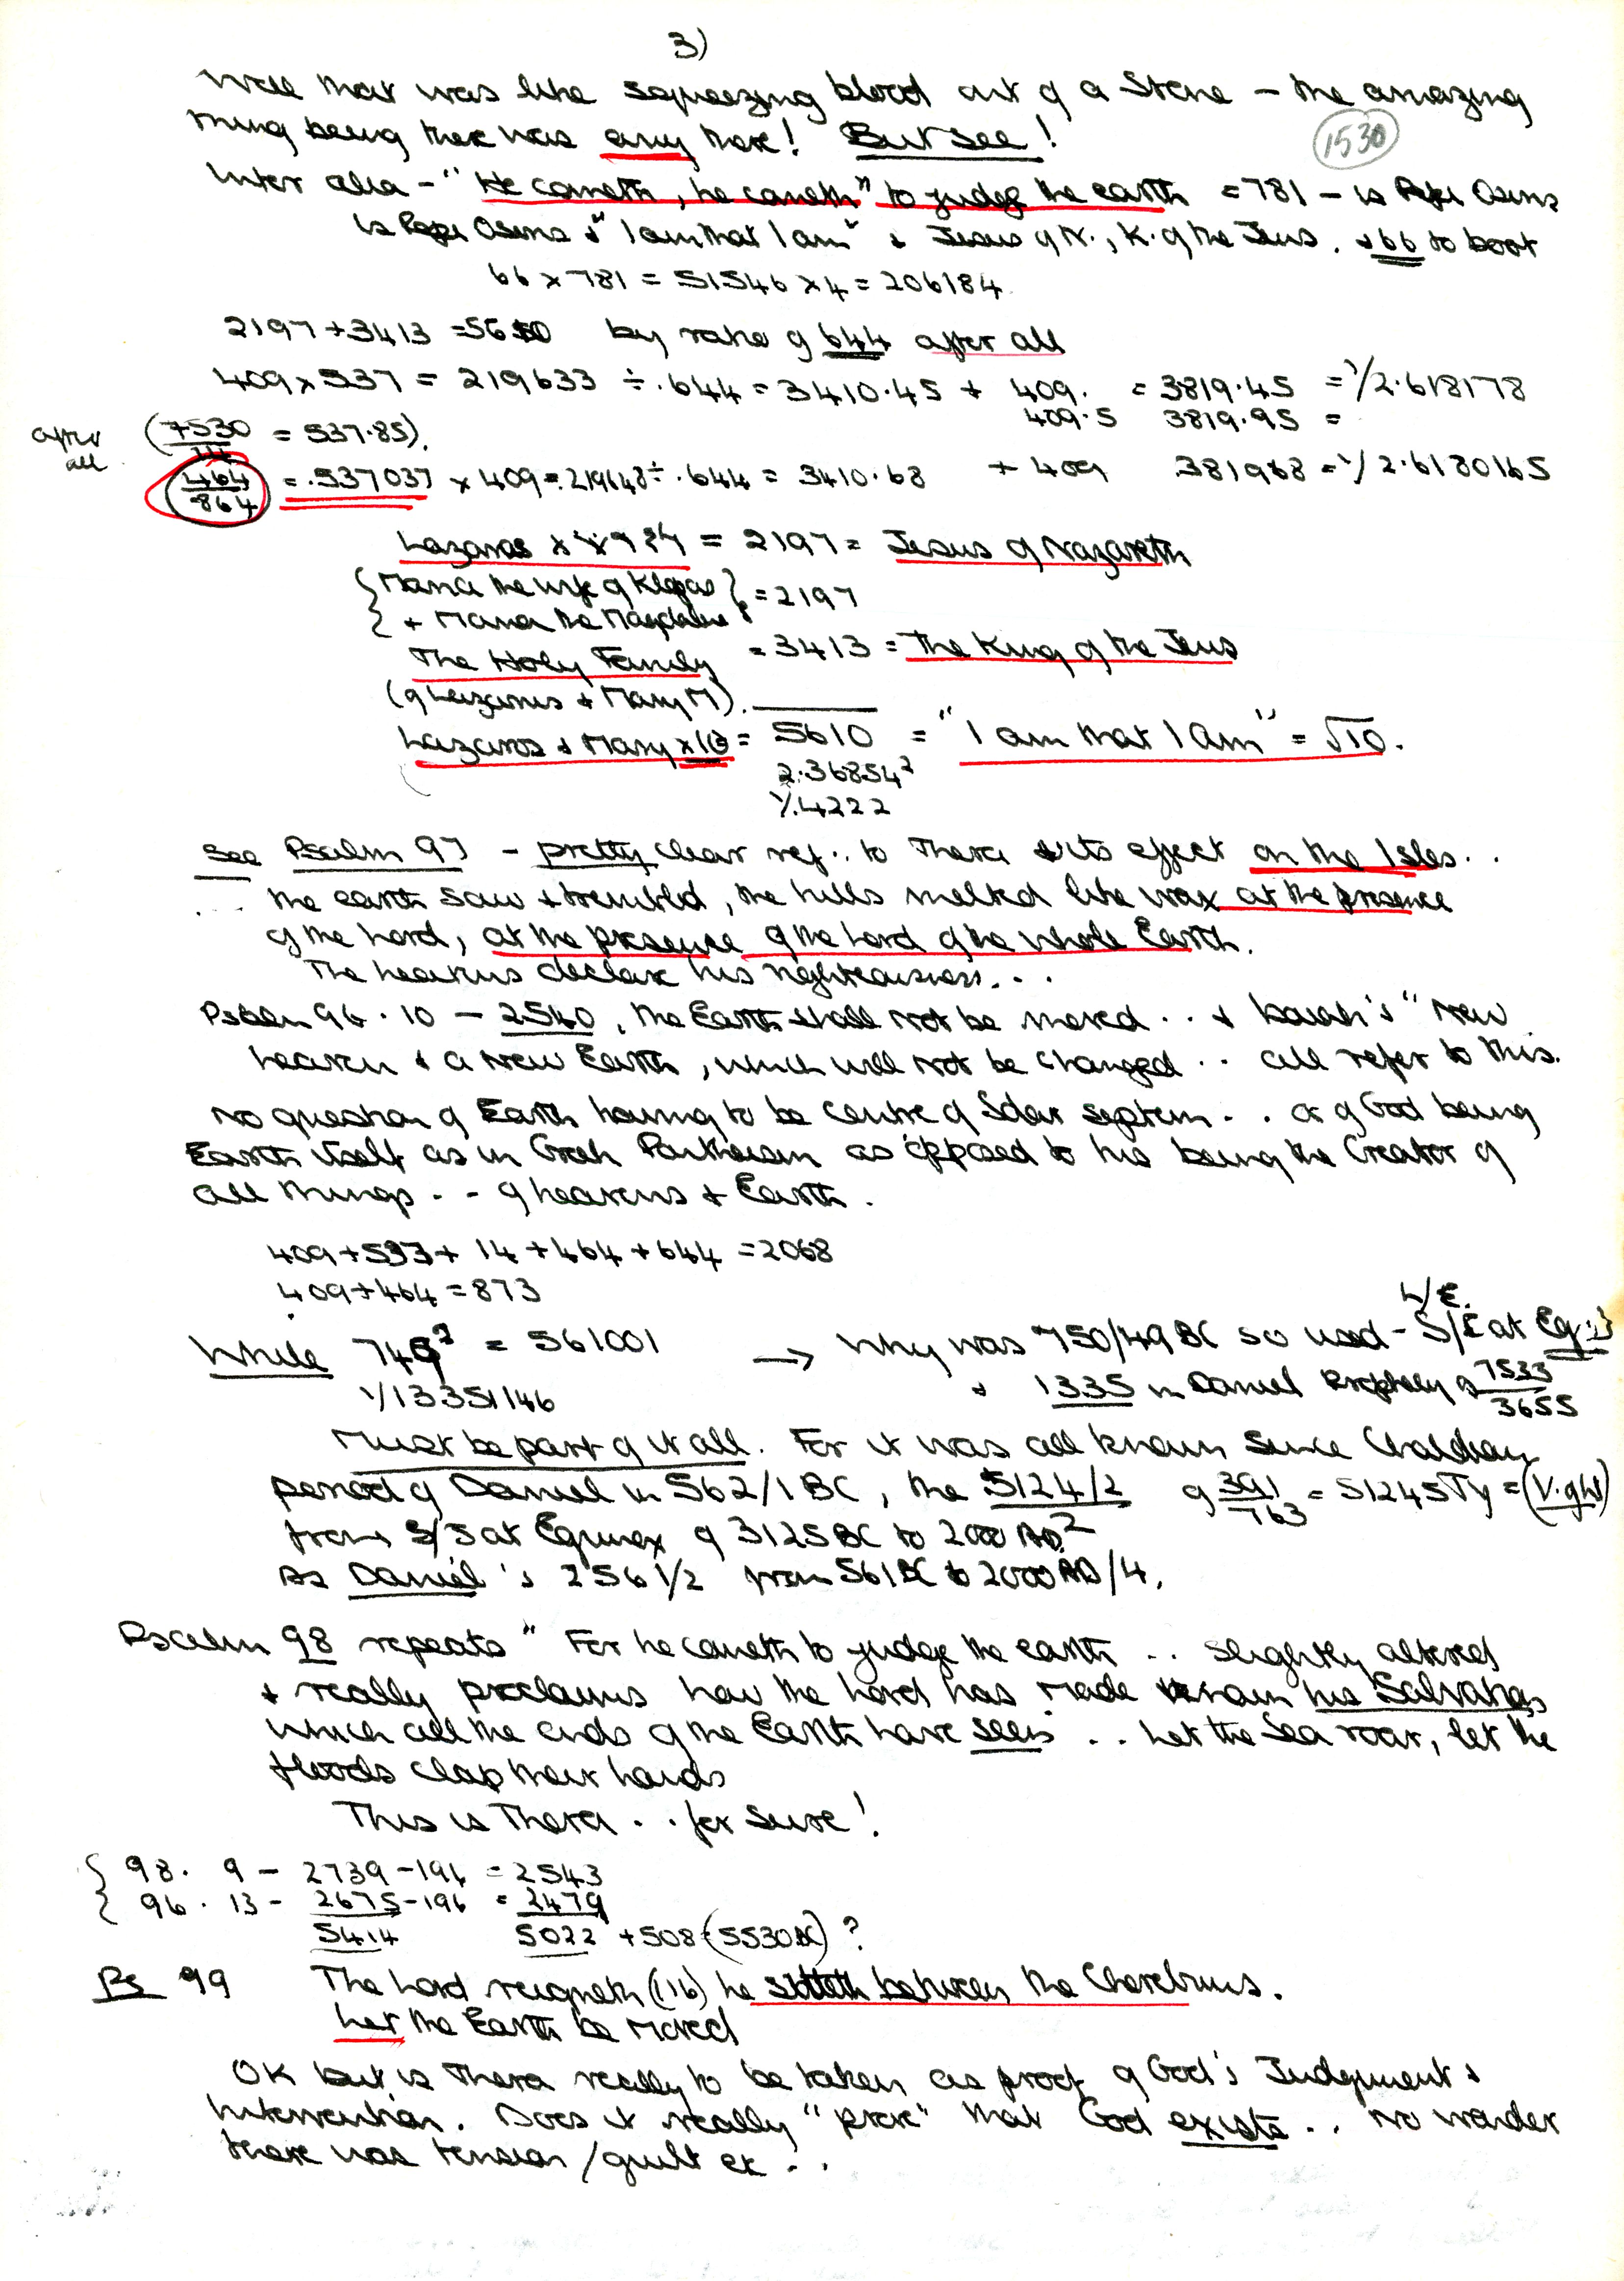 3)
Well that was like squeezing blood out of a Stone – the amazing
thing being there was any there! But see!
1530
Inter alia – "He cometh, he cometh" to judge the earth = 781 – is Pepi Osiris
is Pepi Osiris & "I am that I am" & Jesus of N., K. of the Jews. & 66 to boot
66 x 781 = 51546 x 4 = 206184
2197 + 3413 = 5610 by ratio of 644 after all
409 x 537 = 219633 ÷ .644 = 3410.45 + 409. = 3819.45 = 1/2.618178
409.5 3819.95 =
after all (7530/14 = 537.85).
464/864 = .537037 x 409 = 219648 ÷ .644 = 3410.68 + 409 381968 = 1/2.6180165
Lazaros x = 2197 = Jesus of Nazareth
{Maria the wife of Klopas} = 2197
{+ Maria the Magdalene}
The Holy Family = 3413 = The King of the Jews
(of Lazarus + Mary M).
Lazaros & Mary x 10 = 5610 = "I am that I Am" = √10.
2.36854²
1/.4222
See Psalm 97 – pretty clear ref. to Thera & its effect on the Isles..
... the earth saw & trembled, the hills melted like wax at the presence
of the Lord, at the presence of the Lord of the whole Earth.
The heavens declare his righteousness...
Psalm 96.10 – 2540, the Earth shall not be moved.. & Isaiah's "New
heaven & a New Earth, which will not be changed.. all refer to this.
No question of Earth having to be centre of Solar system.. or of God being
Earth itself as in Greek Pantheism as opposed to his being the Creator of
all things.. of heavens & Earth.
409 + 537 + 14 + 464 + 644 = 2068
409 + 464 = 873
While 749² = 561001 → Why was 750/49 BC so used – S/E at Eq:
L/E.
1/13351146 & 1335 in Daniel Prophecy 7533/3655
Must be part of it all. For it was all known since Chaldean
period of Daniel in 562/1 BC, the 5124/2 of 391/763 = 51245 Ty = (V. of W)
from S/S at Equinox of 3125 BC to 2000 AD.
As Daniel's 2561/2 from 561 BC to 2000 AD/4.
Psalm 98 repeats "For he cometh to judge the earth .. slightly altered
& really proclaims how the Lord has made known his Salvation
which all the ends of the Earth have seen .. Let the Sea roar, let the
floods clap their hands
This is Thera .. for Sure!
{ 98. 9 – 2739 – 196 = 2543
{ 96. 13 – 2675 – 196 = 2479
5414 5022 + 508 (5530 BC) ?
Ps 99 The Lord reigneth (116) he sitteth between the Cherebims.
Let the Earth be Moved
OK but is Thera really to be taken as proof of God's Judgement &
Intervention. Does it really "prove" that God exists.. No wonder
there was tension/guilt etc..